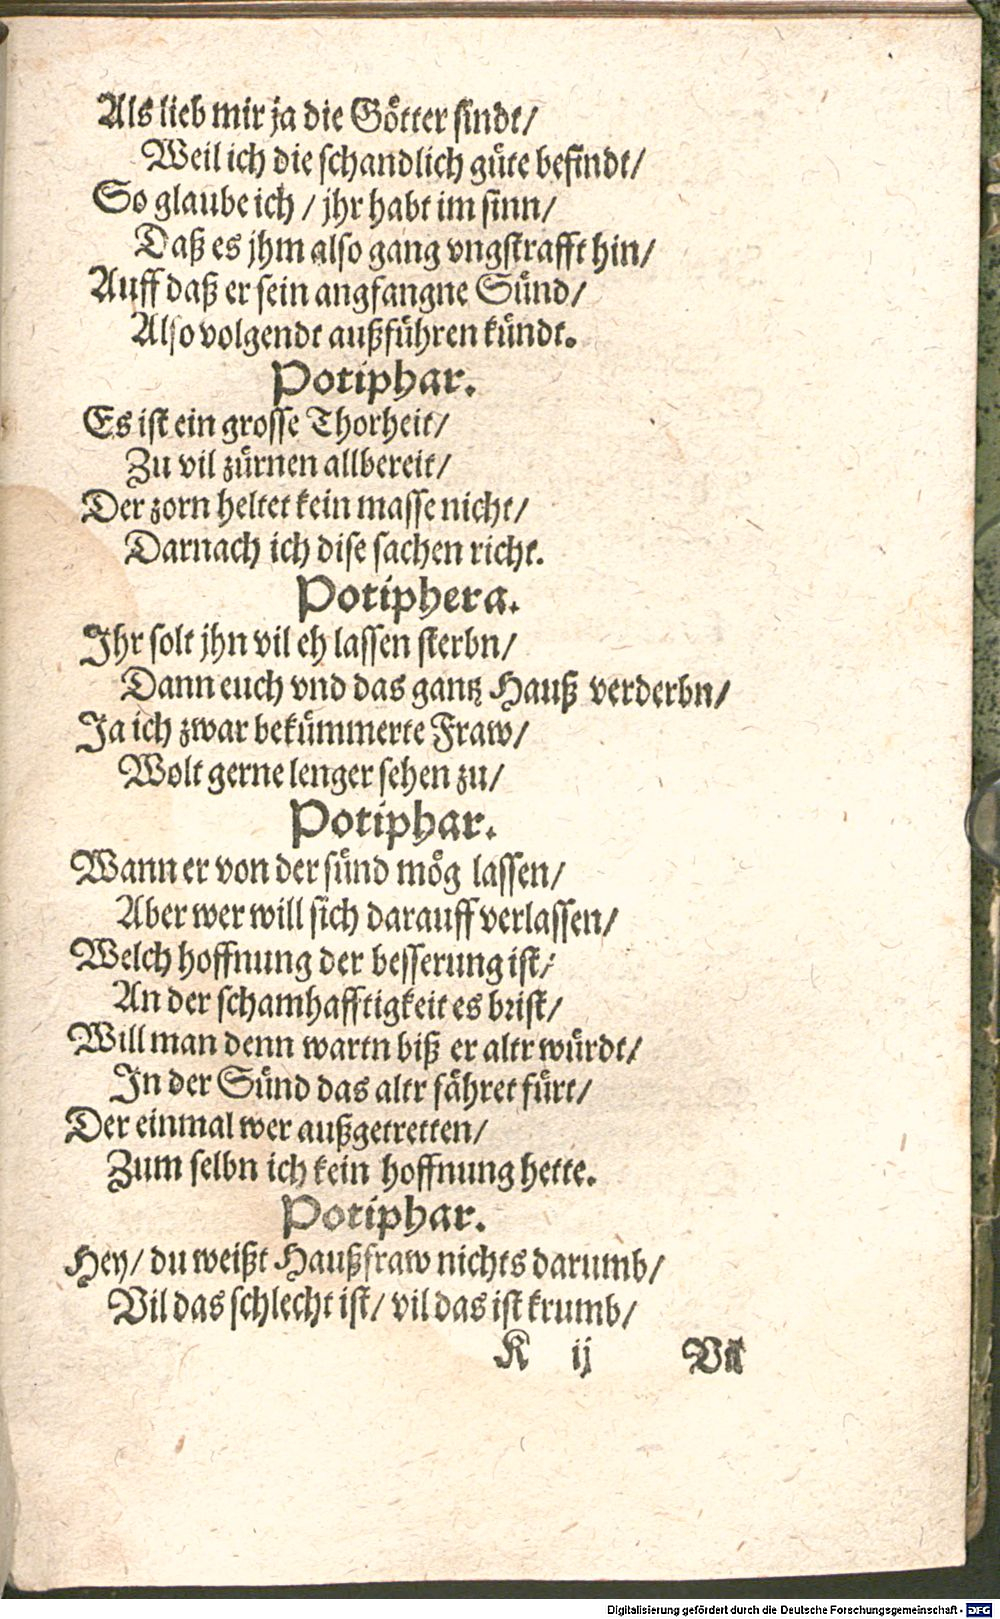 Als lieb mir ja die Goͤtter sindt/
Weil ich die schandlich guͤte befindt/
So glaube ich / jhr habt im sinn/
Daß es jhm also gang vngstrafft hin/
Auff daß er sein angfangne Suͤnd/
Also volgendt außfuͤhren kuͤndt.
Potiphar.
Es ist ein grosse Thorheit/
Zu vil zuͤrnen allbereit/
Der zorn heltet kein masse nicht/
Darnach ich dise sachen richt.
Potiphera.
Ihr solt jhn vil eh lassen sterbn/
Dann euch vnd das gantz Hauß verderbn/
Ja ich zwar bekuͤmmerte Fraw/
Wolt gerne lenger sehen zu/
Potiphar.
Wann er von der suͤnd moͤg lassen/
Aber wer will sich darauff verlassen/
Welch hoffnung der besserung ist/
An der schamhafftigkeit es brist/
Will man denn wartn biß er altr wuͤrdt/
In der Suͤnd das altr faͤhret fuͤrt/
Der einmal wer außgetretten/
Zum selbn ich kein hoffnung hette.
Potiphar.
Hey/ du weißt Haußfraw nichts darumb/
Vil das schlecht ist/ vil das ist krumb/
K ij Vil
Digitalisierung gefördert durch die Deutsche Forschungsgemeinschaft - DFG